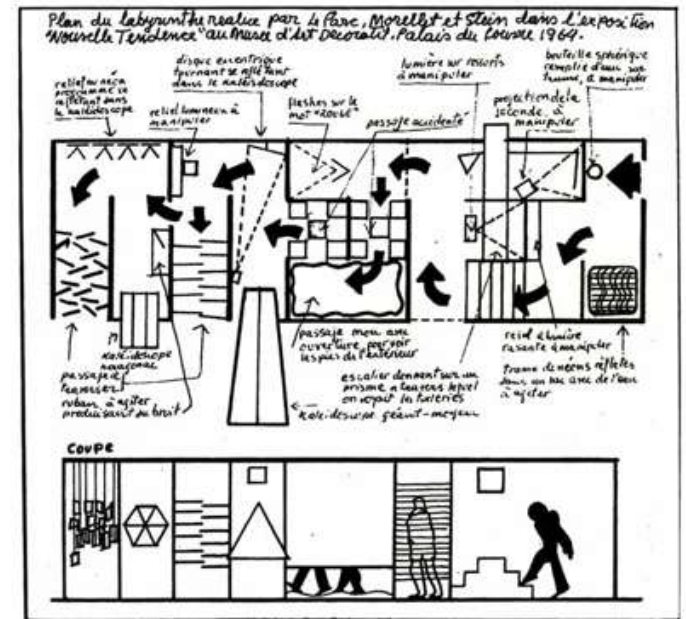 Plan du labyrinthe realice par Le Parc, Morellet et Stein dans l'exposition
"Nouvelle Tendence" au Musée d'Art Decoratif. Palais du Louvre 1964.
relief lumineux
programmé se
reflétant dans
le kaleidoscope
relief lumineux à
manipuler
disque eccentrique
tournant se reflétant
dans le kaleidoscope
flashes sur le
mot "ROUGE"
passage accidenté
lumière sur ressorts
à manipuler
projection de la
seconde, à
manipuler
bouteille sphérique
remplie d'eau sur
trame, à manipuler
kaleidoscope
hexagonal
passage à
traverser
ruban à agiter
produisant du bruit
passage mou avec
ouverture pour voir
les pies de l'extérieur
escalier donnant sur un
prisme a travers lequel
on voyait les Tuileries
kaleidoscope géant-moyeu
relief à lumière
rasante à manipuler
trame de néons réfletés
dans un bac avec de l'eau
à agiter
COUPE